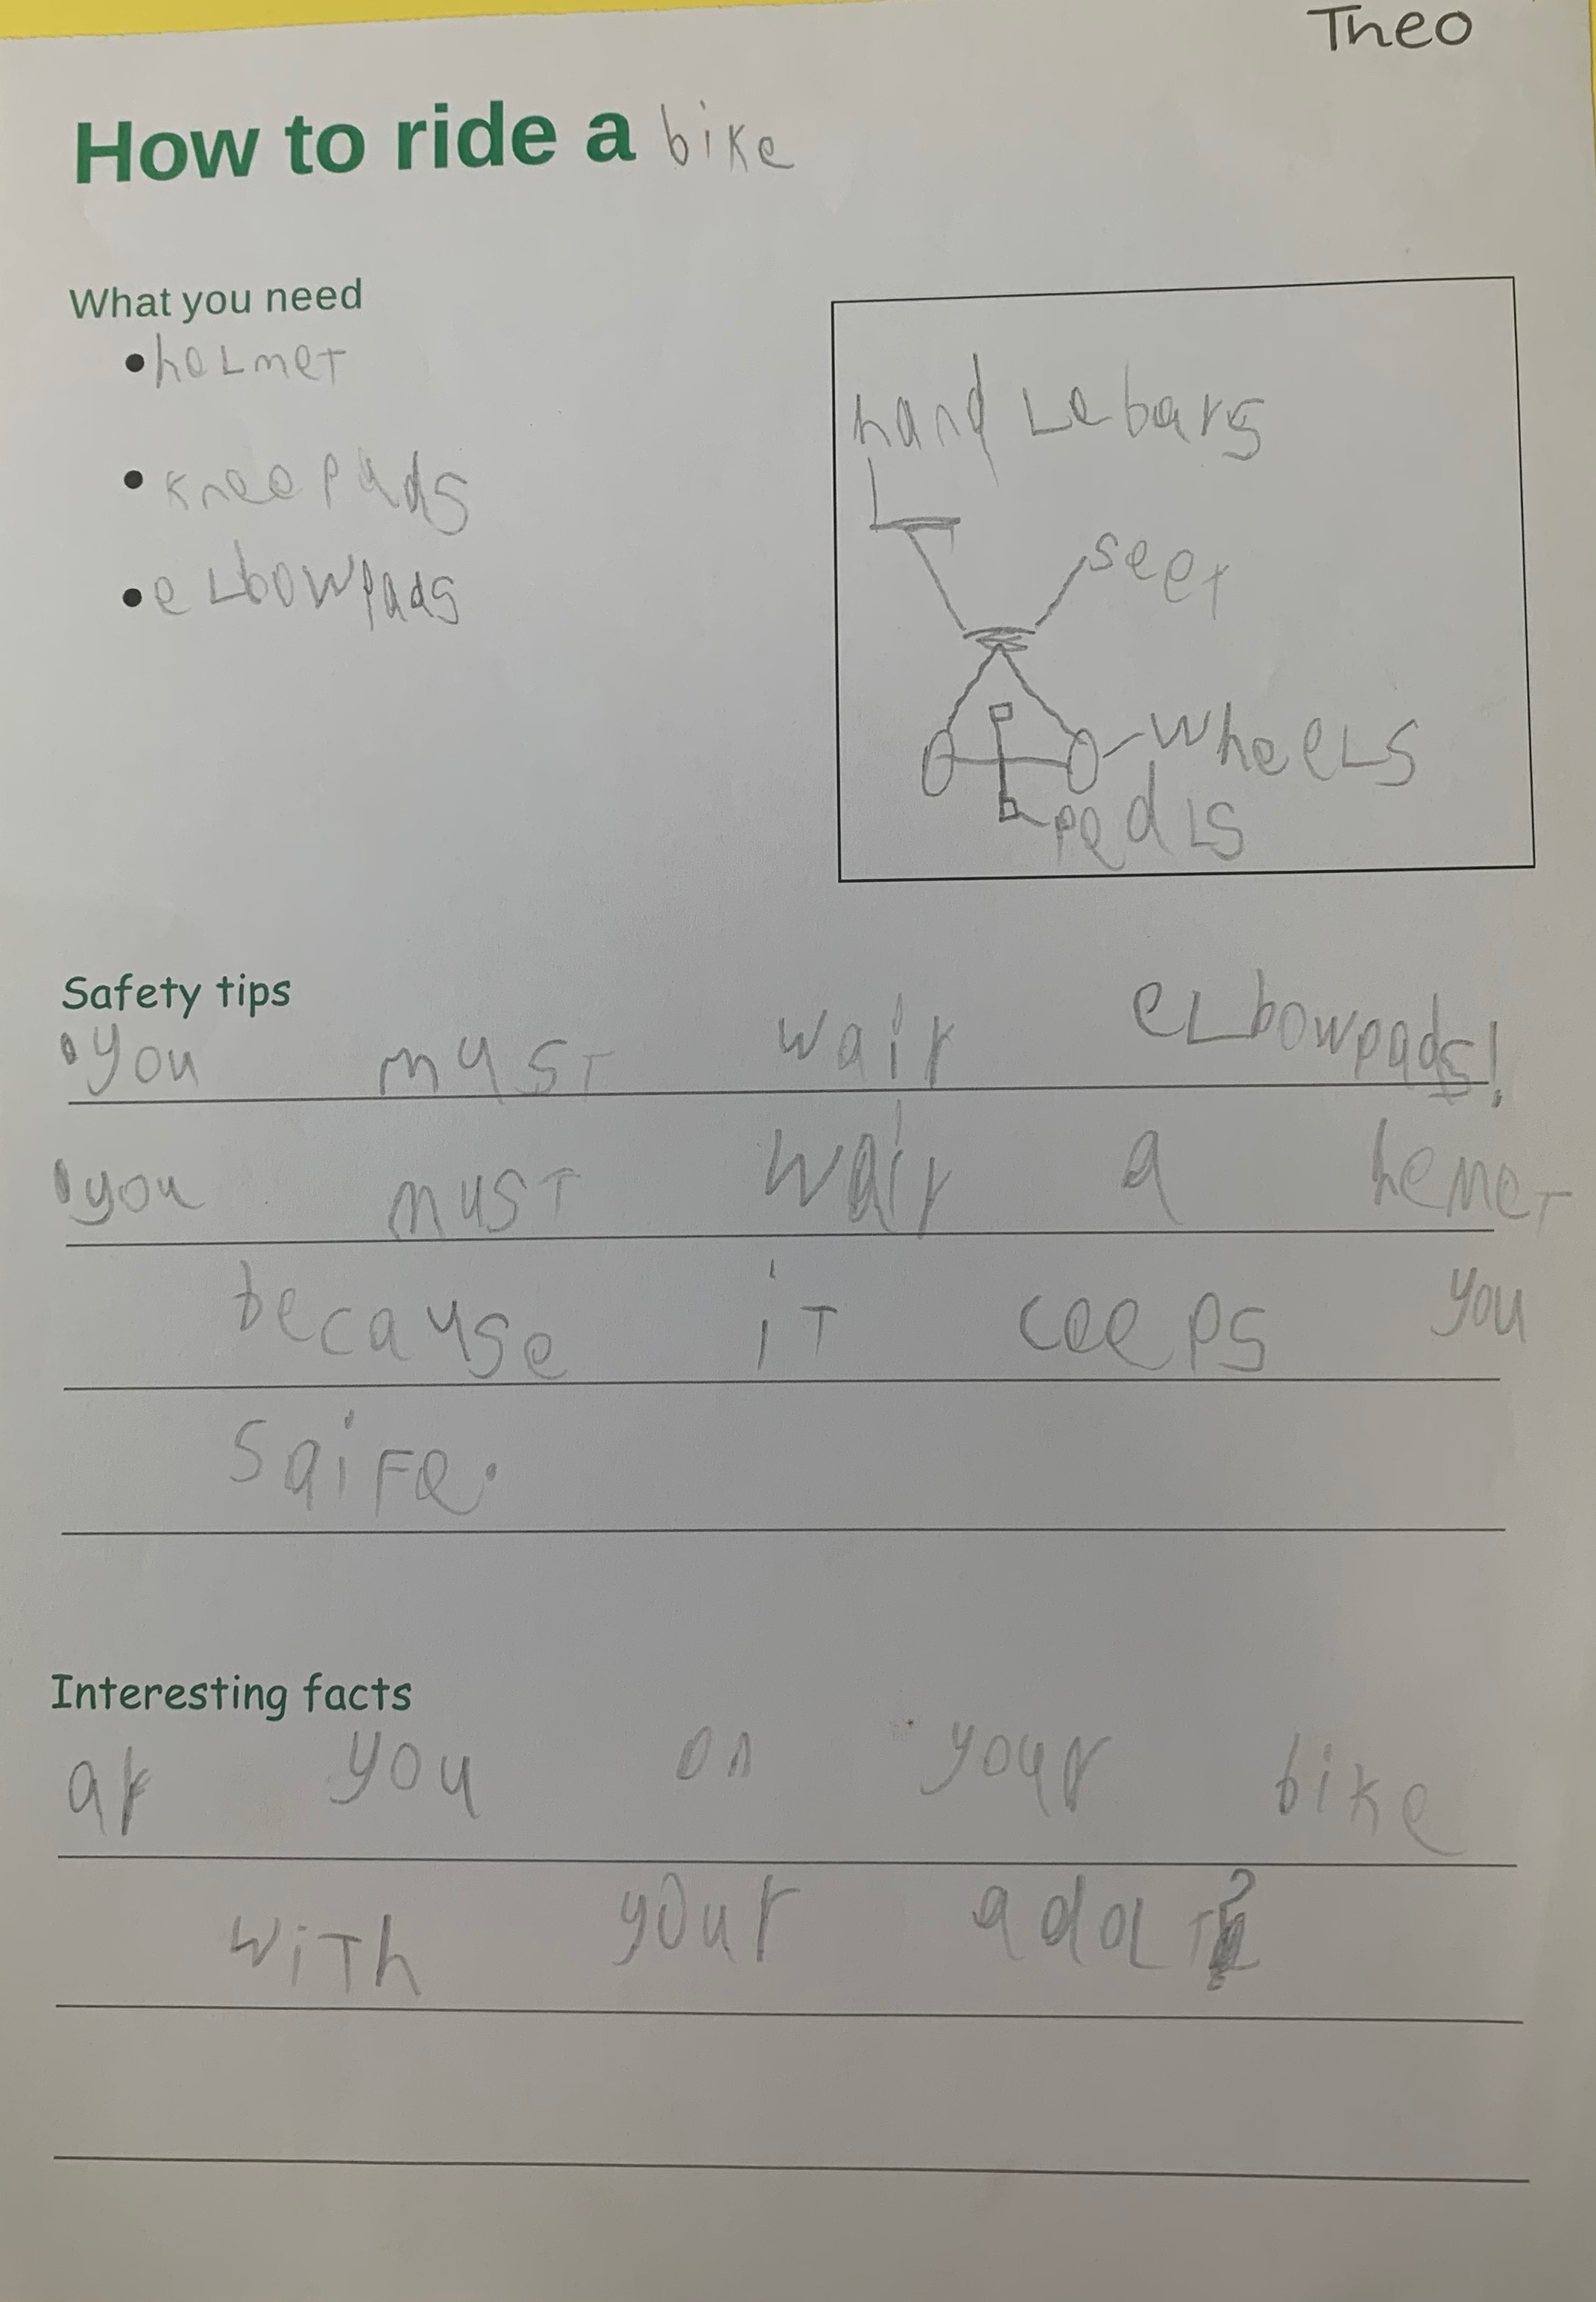 Theo
How to ride a bike
What you need
•helmet
•kneepads
•elbowpads
handlebars
seet
wheels
pedls
Safety tips
•you must wair elbowpads!
•you must wair a hemet
because it ceeps you
saife.
Interesting facts
ar you on your bike
with your adolt?